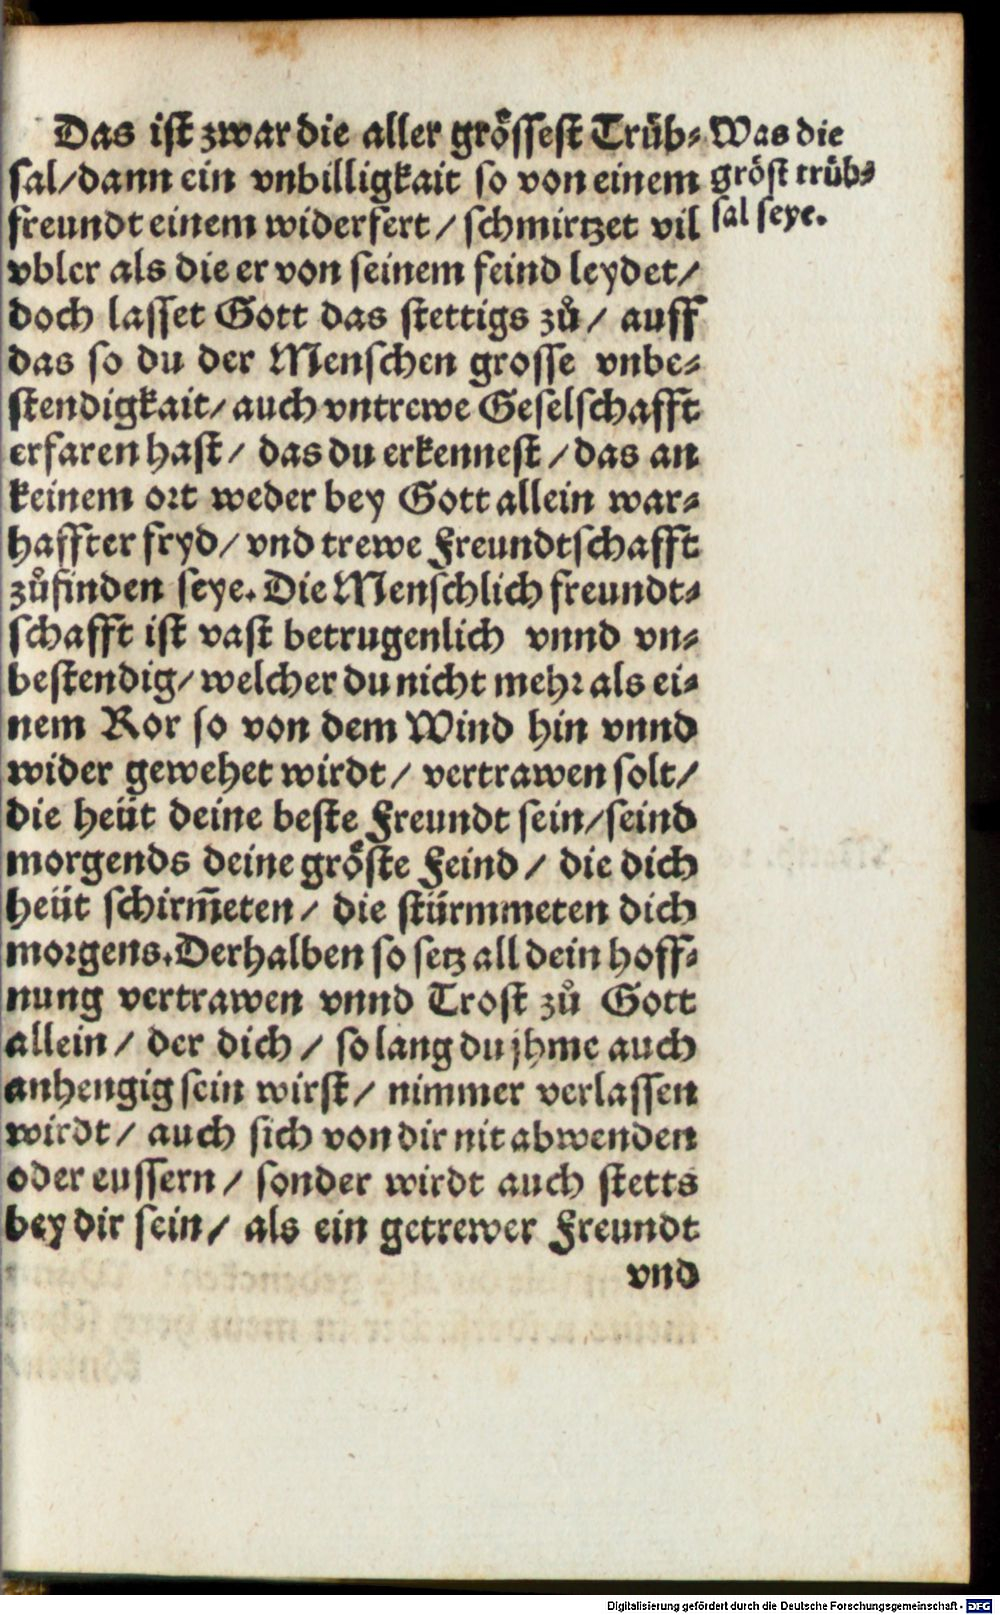 Das ist zwar die aller grössest Trüb-
sal/dann ein vnbilligkait so von einem
freundt einem widerfert / schmirtzet vil
vbler als die er von seinem feind leydet/
doch lasset Gott das stettigs zů / auff
das so du der Menschen grosse vnbe-
stendigkait/ auch vntrewe Geselschafft
erfaren hast / das du erkennest / das an
keinem ort weder bey Gott allein war-
haffter fryd/ vnd trewe Freundtschafft
zůfinden seye. Die Menschlich freundt-
schafft ist vast betrugenlich vnnd vn-
bestendig/ welcher du nicht mehr als ei-
nem Ror so von dem Wind hin vnnd
wider gewehet wirdt / vertrawen solt/
die heüt deine beste Freundt sein/seind
morgends deine gröste Feind / die dich
heüt schirm̄eten / die stürmmeten dich
morgens. Derhalben so setz all dein hoff-
nung vertrawen vnnd Trost zů Gott
allein / der dich / so lang du jhme auch
anhengig sein wirst / nimmer verlassen
wirdt / auch sich von dir nit abwenden
oder eussern / sonder wirdt auch stetts
bey dir sein / als ein getrewer Freundt
vnd
Was die
gröst trüb-
sal seye.
Digitalisierung gefördert durch die Deutsche Forschungsgemeinschaft - DFG